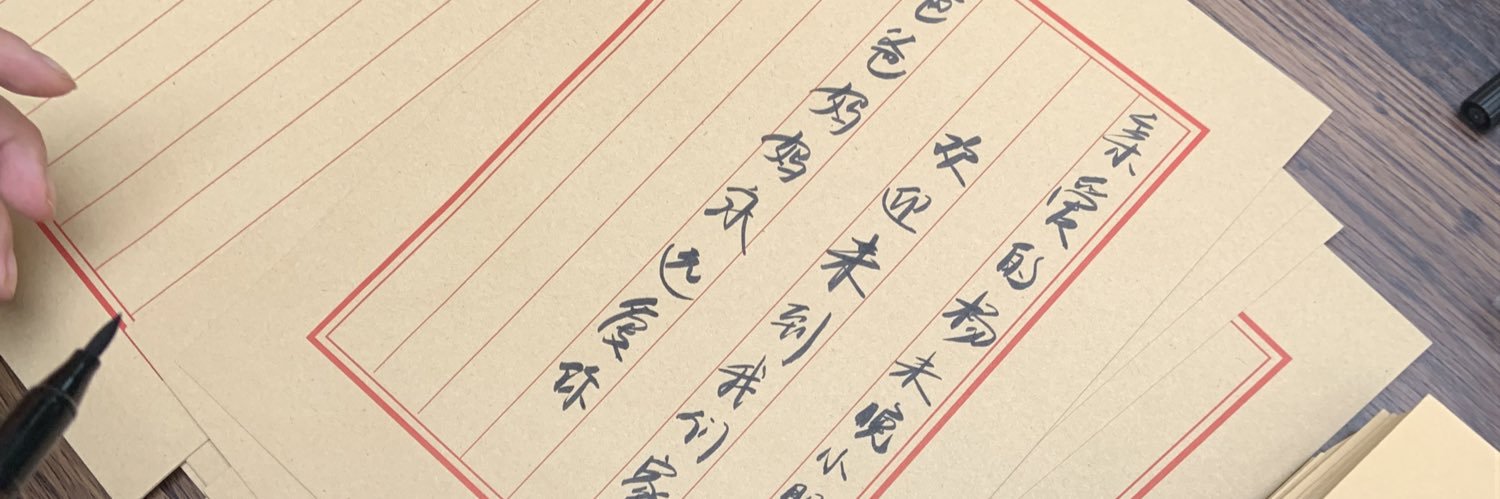 亲爱的杨未晚小朋
欢迎来到我们家
爸爸妈妈永远爱你